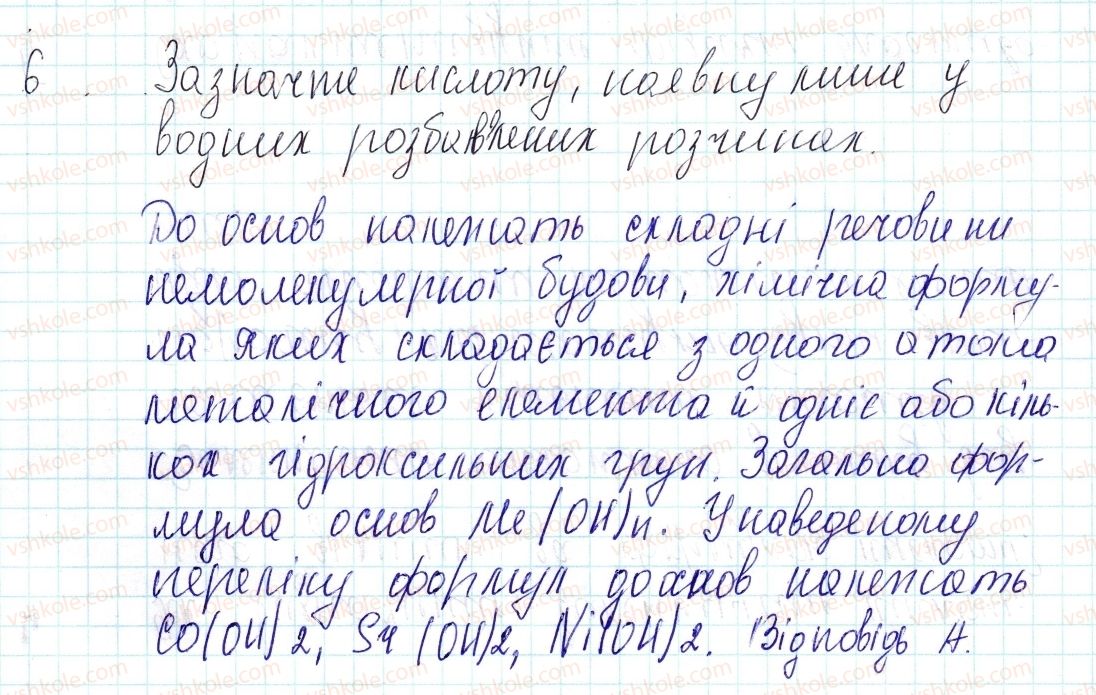 6. Зазначте кислоту, наявну лише у
водних розбавлених розчинах.
До основ належать складні речовини
немолекулярної будови, хімічна форму-
ла яких складається з одного атома
металічного елемента й одніє або кіль-
кох гідроксильних груп. Загальна фор-
мула основ Me(OH)n. У наведеному
переліку формул до основ належать
Co(OH)2, Sr(OH)2, Ni(OH)2. Відповідь А.